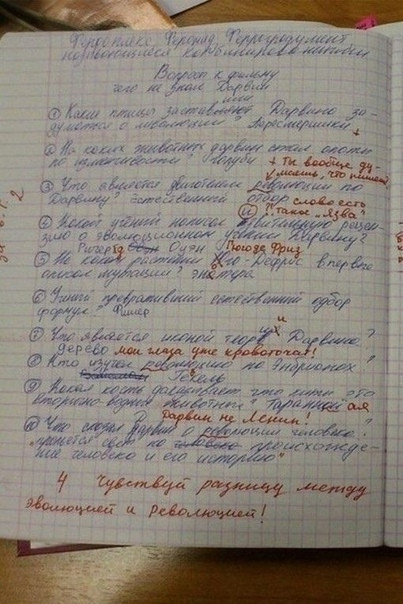 Ферроплекс, Ферошад, Феррогрдумент
Вопросы к фильму
чего не знал Дарвин
или
① Какие птицы заставляют Дарвина за-
думатся о революции? Пересмешники
② На каких животных дарвин ставил опыты
по изменчивости? голуби
+ Ты вообще ду-
маешь, что пишешь
③ Что является двигателем революции по
Дарвину? Естественный отбор
слово есть
такое "Язва"
④ Какой учёный написал язвительную рецен-
зию о эволюционном учении Дарвину?
Ричерд Оуэн Гюго де Фриз
⑤ На каком растении Юго-Дефрис впервые
описал мутации? энотера
⑥ Учёный превративший естественный отбор
в формулу? Фишер
⑦ Что является иконой теории Дарвина?
дерево мои глаза уже кровоточат!
⑧ Кто изучал революцию по эмбрионах?
Геккель
⑨ Какая кость доказывает что киты это
вторично-водные животные? Таранная
Дарвин не Ленин!
⑩ Что сказал Дарвин о революции человека?
"прольётся свет на человека происхожде-
ние человека и его историю"
4 Чувствуй разницу между
эволюцией и революцией!